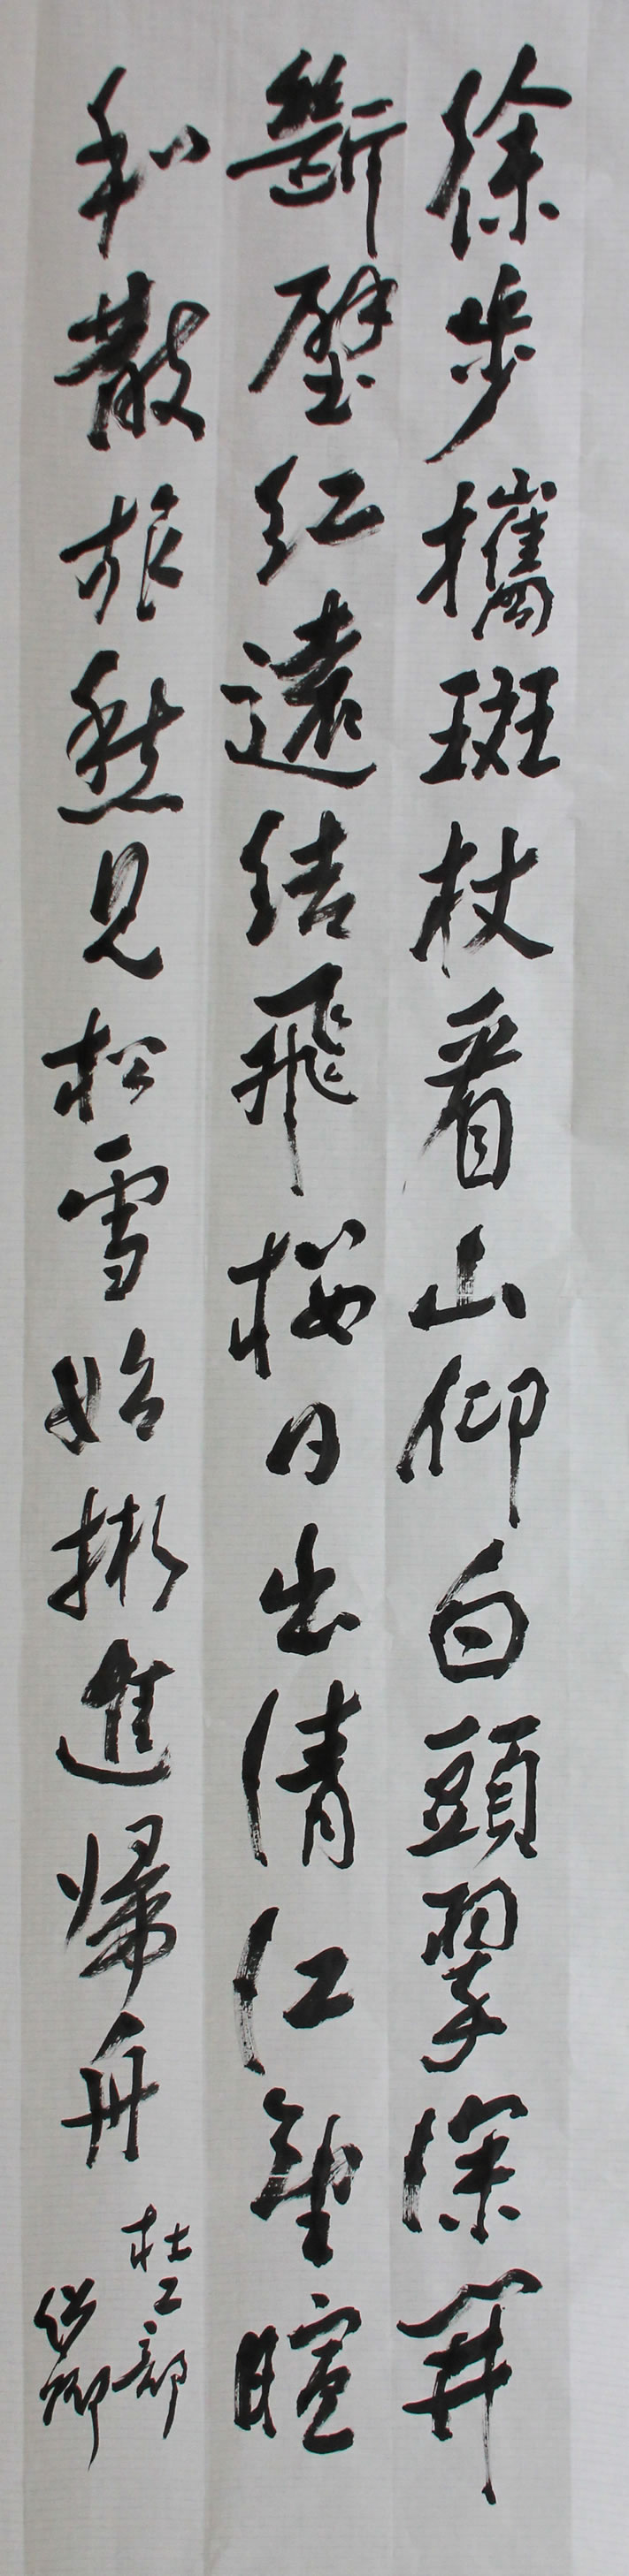 徐步攜斑杖看山仰白頭翠深開
斷壁紅遠結飛樓日出清江望暄
和散旅愁見松雪始擬進帰舟
杜工部